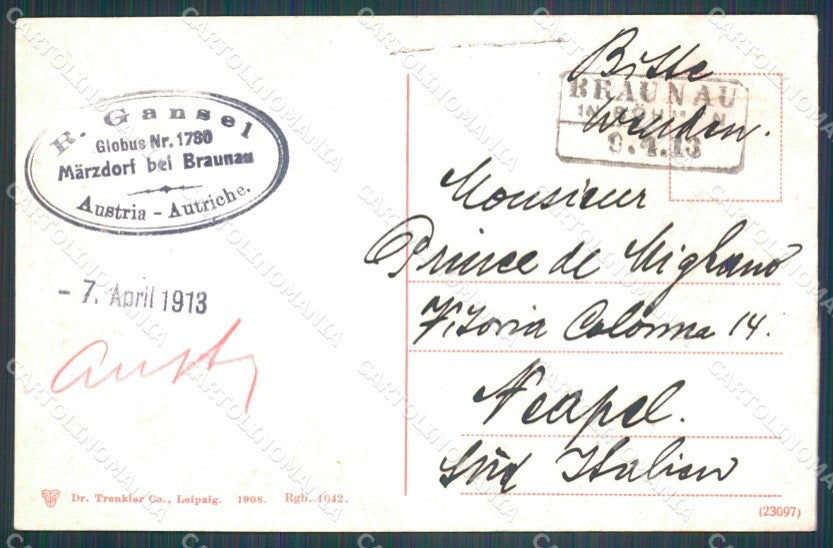 R. Gansel
Globus Nr. 1780
Märzdorf bei Braunau
Austria - Autriche.
- 7. April 1913
Bitte
wenden.
BRAUNAU
IN BÖHMEN
9.4.13
Monsieur
Prince de Mighano
Vitoria Colonna 14.
Neapel.
Süd Italien
Dr. Trenkler Co., Leipzig. 1908. Rgb. 1642.
(23097)
CARTOLINOMANIA